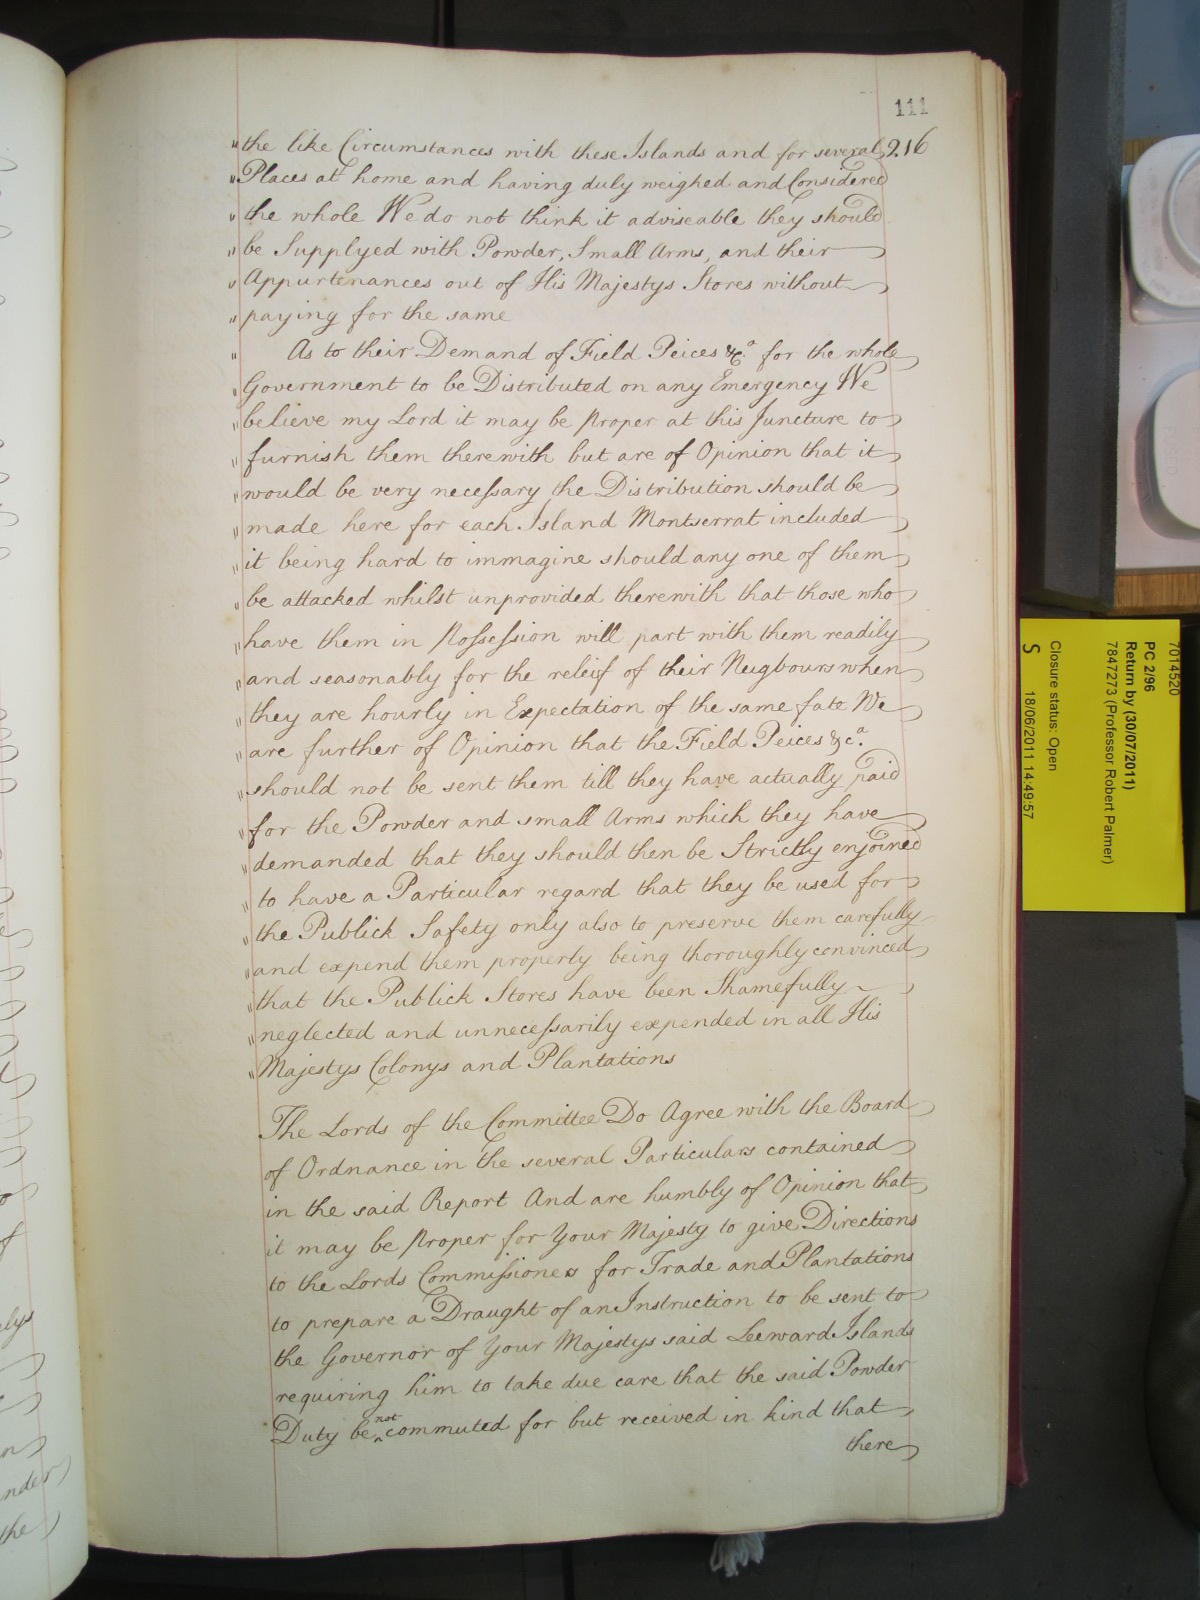 111
216
"the like Circumstances with these Islands and for several
"Places at home and having duly weighed and Considered
"the whole We do not think it adviseable they should
"be Supplyed with Powder, Small Arms, and their
"Appurtenances out of His Majestys Stores without
"paying for the same
" As to their Demand of Field Peices &c.a for the whole
"Government to be Distributed on any Emergency We
"believe my Lord it may be proper at this Juncture to
"furnish them therewith but are of Opinion that it
"would be very necessary the Distribution should be
"made here for each Island Montserrat included
"it being hard to immagine should any one of them
"be attacked whilst unprovided therewith that those who
"have them in Possession will part with them readily
"and seasonably for the releif of their Neigbours when
"they are hourly in Expectation of the same fate We
"are further of Opinion that the Field Peices &c.a
"should not be sent them till they have actually paid
"for the Powder and small Arms which they have
"demanded that they should then be Strictly enjoined
"to have a Particular regard that they be used for
"the Publick Safety only also to preserve them carefully
"and expend them properly being thoroughly convinced
"that the Publick Stores have been Shamefully
"neglected and unnecessarily expended in all His
"Majestys Colonys and Plantations
The Lords of the Committee Do Agree with the Board
of Ordnance in the several Particulars contained
in the said Report And are humbly of Opinion that
it may be proper for Your Majesty to give Directions
to the Lords Commissioners for Trade and Plantations
to prepare a Draught of an Instruction to be sent to
the Governor of Your Majestys said Leeward Islands
requiring him to take due care that the said Powder
Duty be not commuted for but received in kind that
there
7014520
PC 2/96
Return by (30/07/2011)
7847273 (Professor Robert Palmer)
Closure status: Open
S 18/06/2011 14:49:57